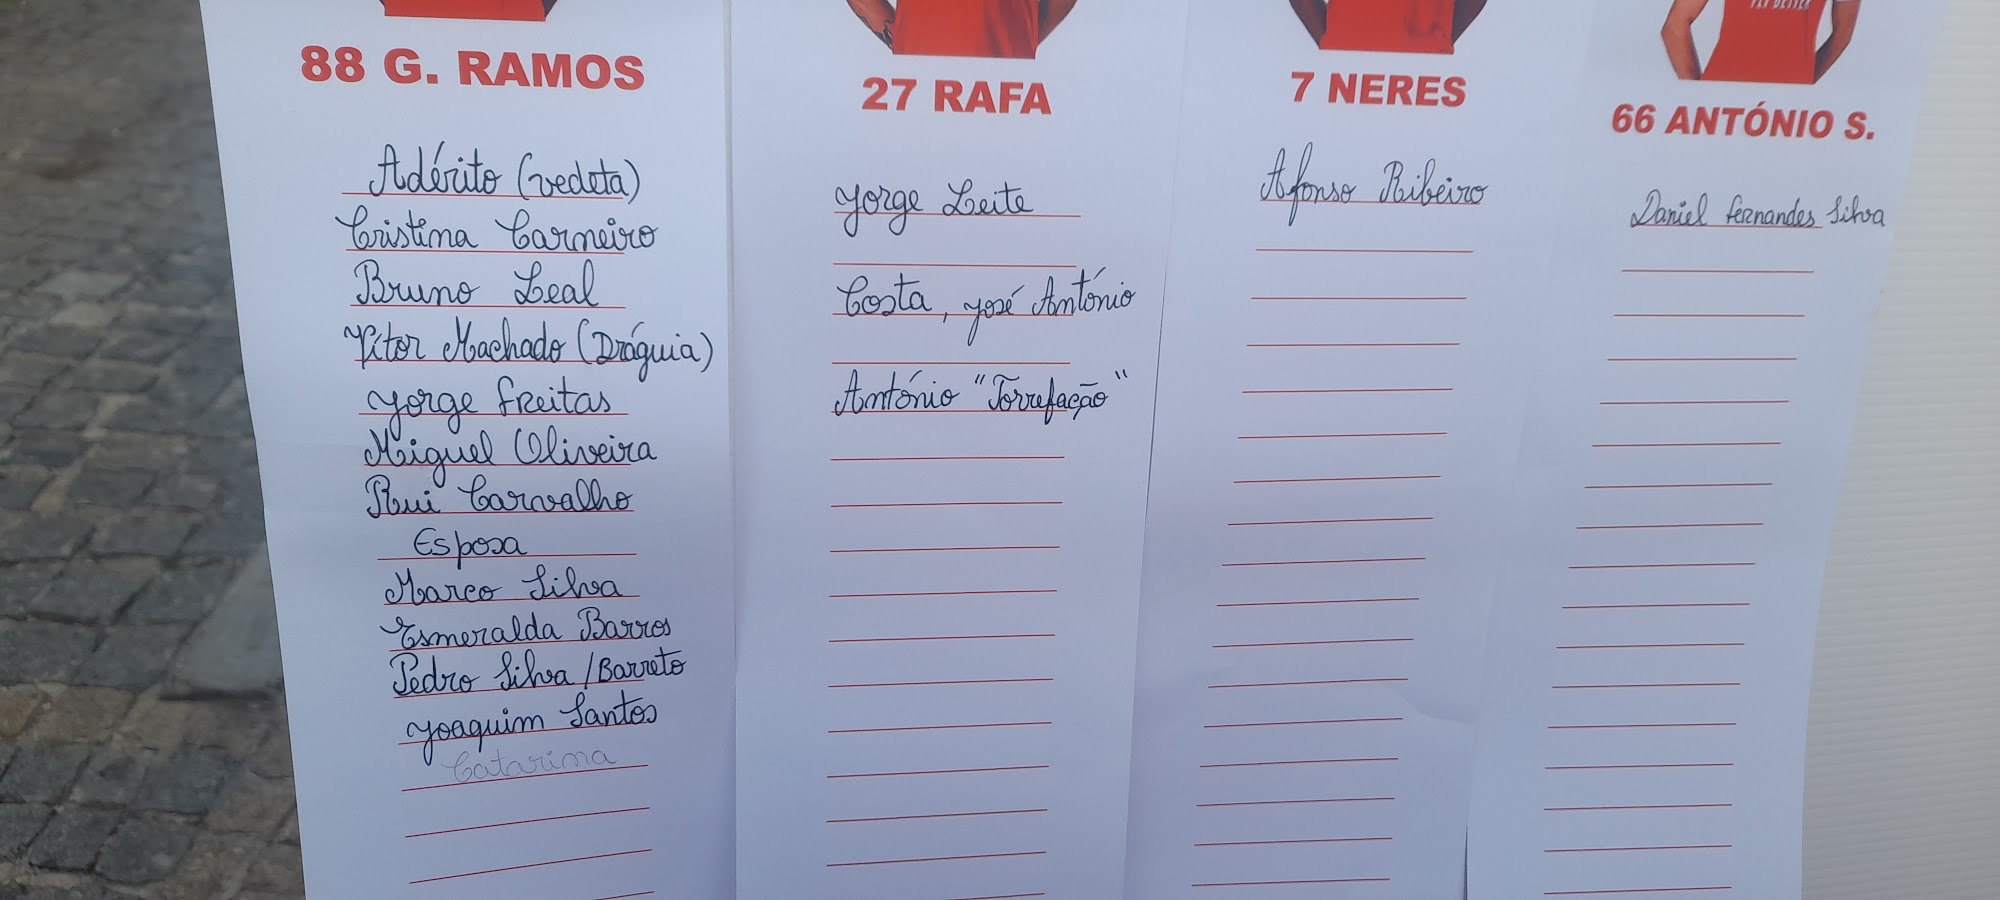 FLY BETTER
88 G. RAMOS
Adérito (vedeta)
Cristina Carneiro
Bruno Leal
Vítor Machado (Dráguia)
Jorge Freitas
Miguel Oliveira
Rui Carvalho
Esposa
Marco Silva
Esmeralda Barros
Pedro Silva / Barreto
Joaquim Santos
Catarina
27 RAFA
Jorge Leite
Costa, José António
António "Torrefação"
7 NERES
Afonso Ribeiro
66 ANTÓNIO S.
Daniel Fernandes Silva